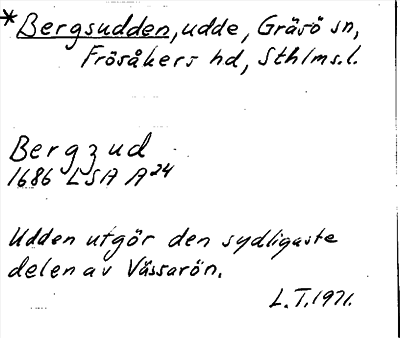 *Bergsudden, udde, Gräsö sn,
Frösåkers hd, Sthlms.l.
Bergzud
1686 LSA A24
Udden utgör den sydligaste
delen av Vässarön.
L.T.1971.